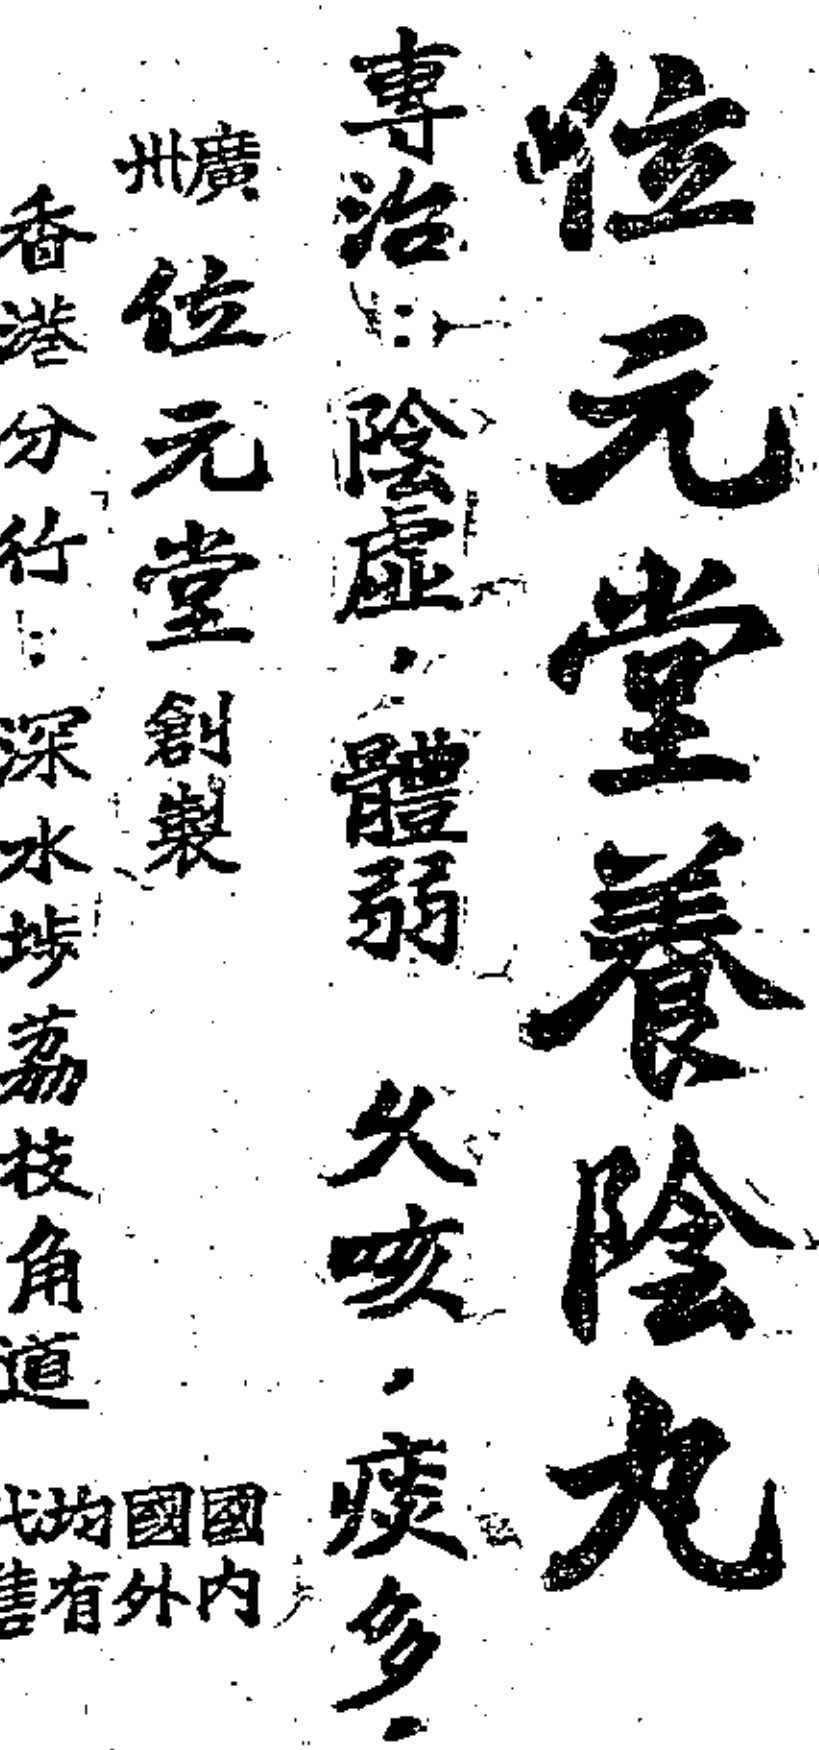 位元堂養陰丸
專治：陰虛，體弱　久咳，痰多．
廣州
位元堂
創製
香港分行：深水埗荔枝角道
國內
國外
均有
代售